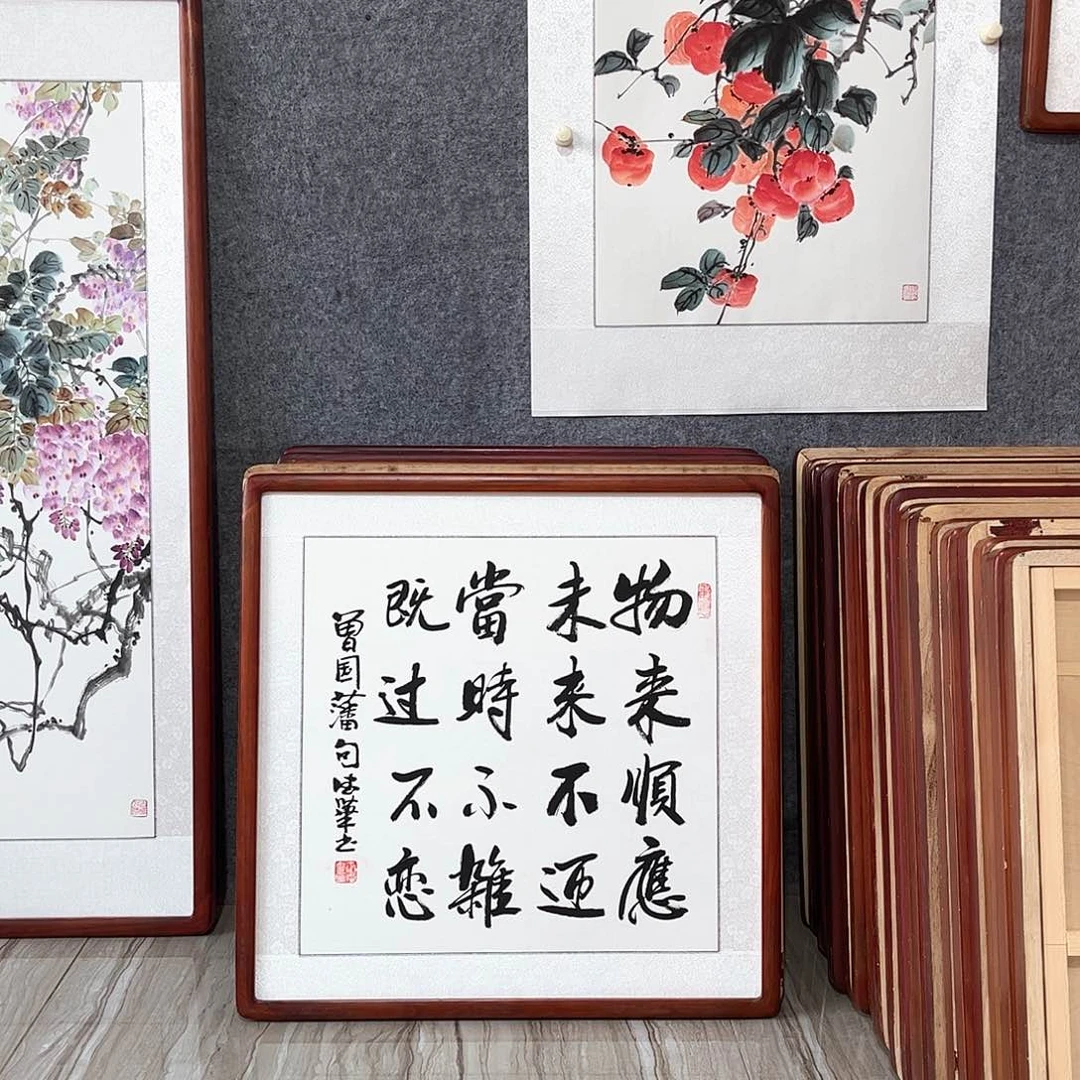 物来順應
未来不迎
當時不雜
既过不恋
曾国藩句